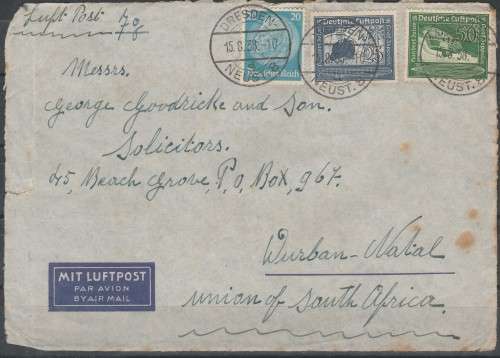 Luft Post
DRESDEN-
15.8.38.-10
NEUST.
20
Deutsches Reich
Deutsche Luftpost
25
Deutsche Luftpost
50
NEUST.
Messrs.
George Goodricke and Son.
Solicitors.
45, Beach Grove, P.O. Box, 967.
Durban-Natal
MIT LUFTPOST
PAR AVION
BY AIR MAIL
union of South Africa.